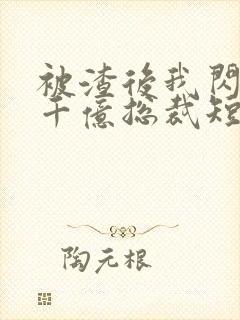 被渣後我閃
千億總裁短
陶元根